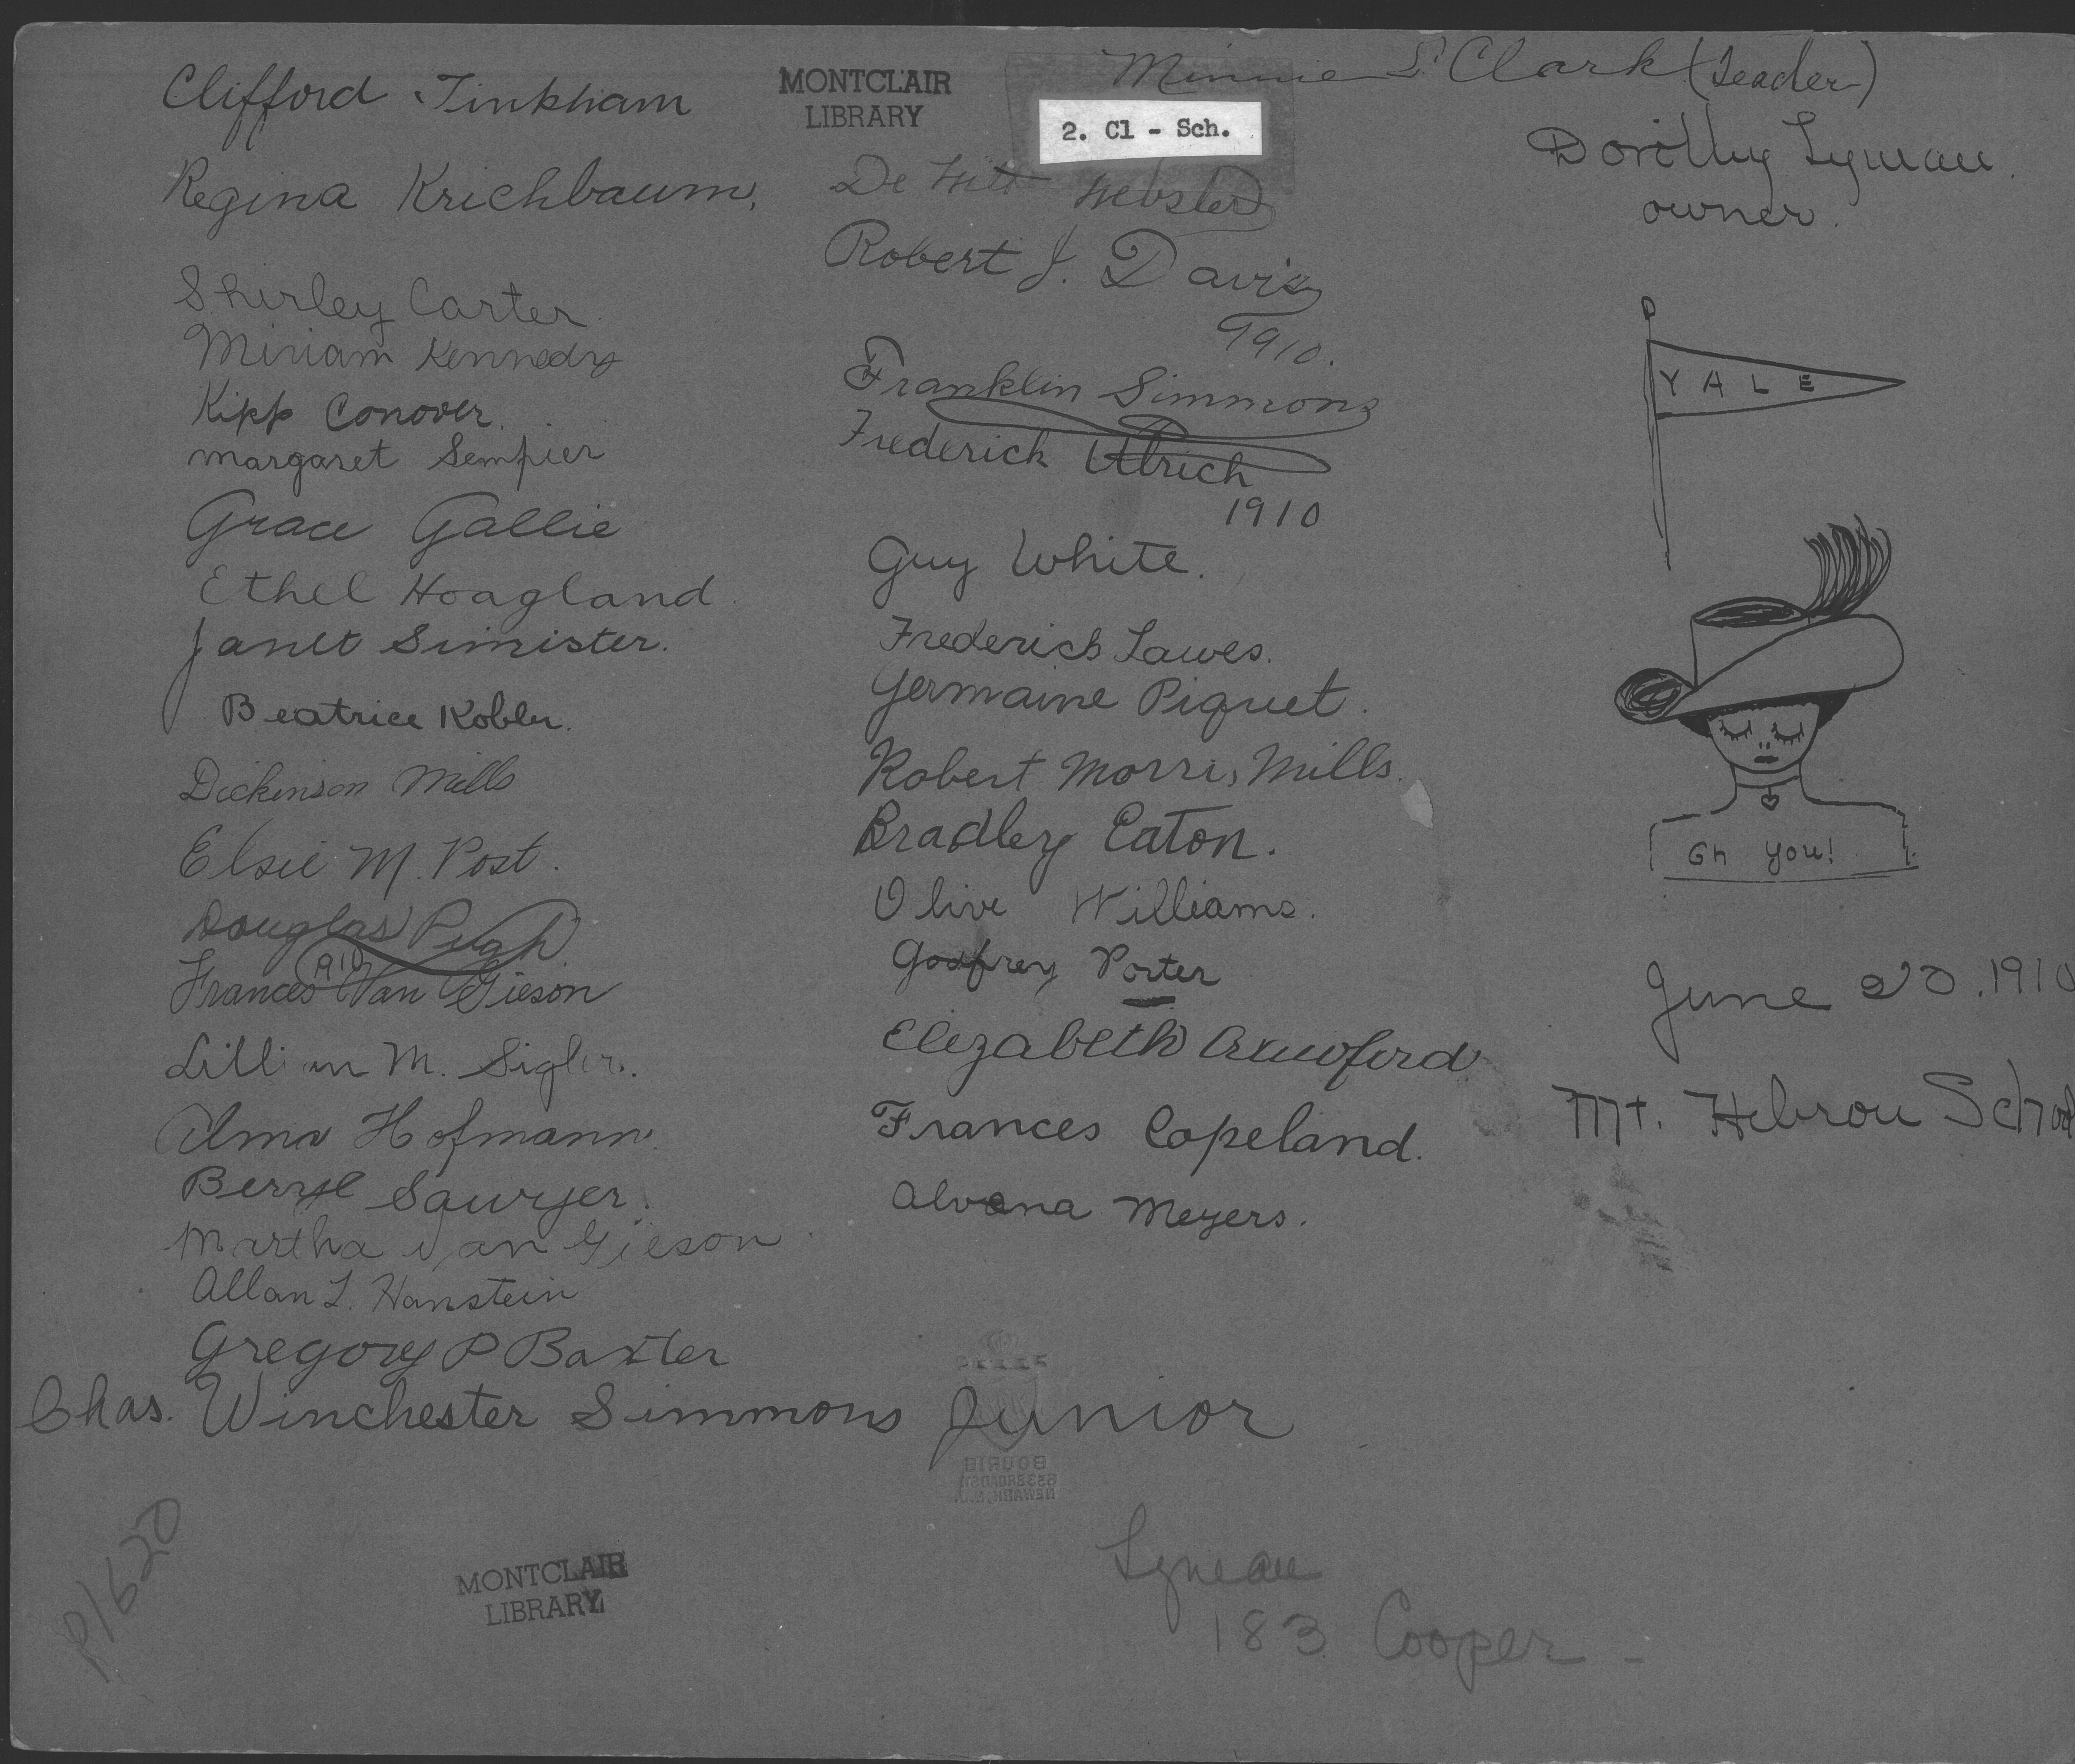 Clifford Tinkham
Regina Krichbaum.
Shirley Carter
Miriam Kennedy
Kipp Conover.
Margaret Sempier
Grace Gallie
Ethel Hoagland.
Janet Simister.
Beatrice Kobler.
Dickinson Mills
Elsie M. Post.
Douglas Pugh
Frances Van Gieson
Lillian M. Sigler.
Alma Hofmann.
Beryl Sawyer.
Martha Van Gieson.
Allan L. Hanstein
Gregory P Baxter
Chas. Winchester Simmons Junior
P1620
MONTCLAIR
LIBRARY
MONTCLAIR
LIBRARY
Minnie S. Clark (Leader)
2. Cl - Sch.
De Witt Webster
Robert J. Davis
1910.
Franklin Simmons
Frederick Ulrich
1910
Guy White.
Frederick Lawes.
Germaine Piquet.
Robert Morris Mills.
Bradley Eaton.
Olive Williams.
Godfrey Porter
Elizabeth Crawford
Frances Copeland.
Alvana Meyers.
Dorothy Lyman.
owner.
YALE
Gh you!
June 20. 1910
Mt. Hebron School
Lyman
183 Cooper -